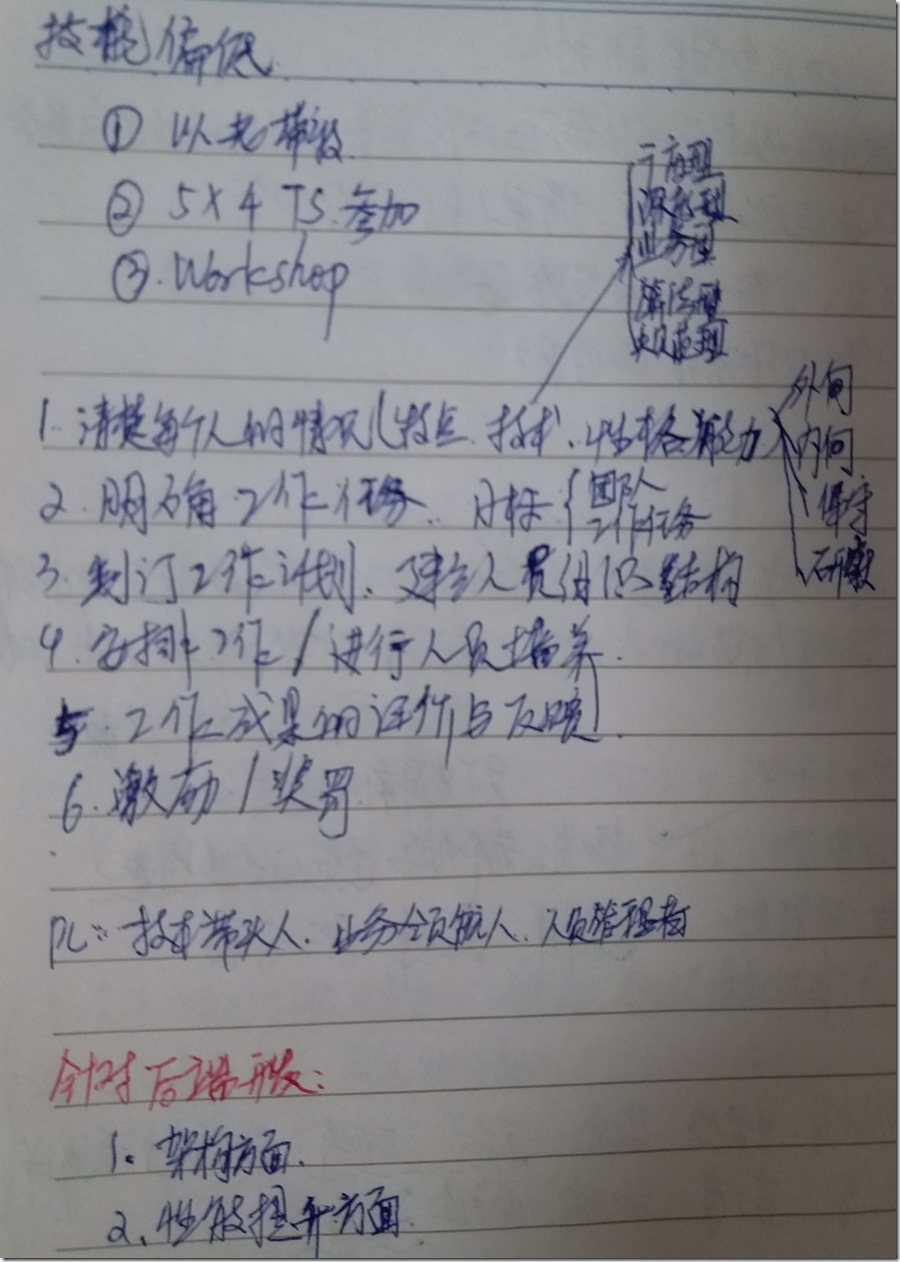 技能偏低
① 以老带新
② 5X4 TS 参加
③. Workshop
业务型
算法型
规范型
1. 清楚每个人的情况(特点、技术、性格、能力)
外向
内向
保守
2. 明确工作任务、目标 { 团队
工作任务
3. 制订工作计划、建立人员组织结构
4. 安排工作/进行人员培养.
5. 工作成果的评价与反馈
6. 激励/奖罚
PL: 技术带头人、业务领航人、人员管理者
针对后端开发:
1. 架构方面.
2. 性能提升方面.